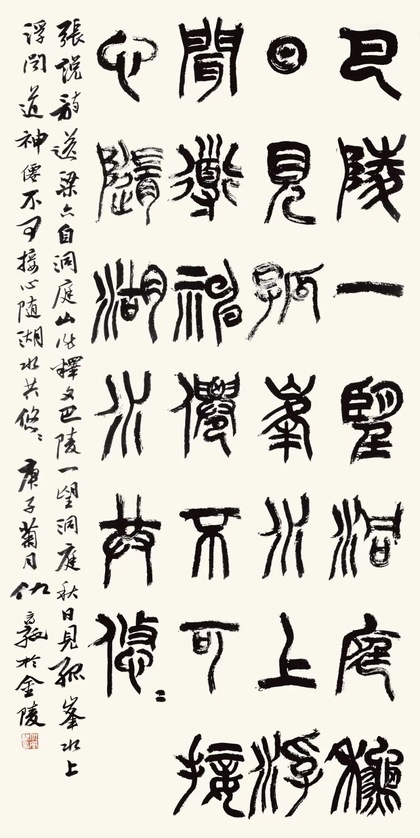 巴陵一望洞庭秋
日見孤峯水上浮
聞道神僊不可接
心隨湖水共悠〻
張說詩送梁六自洞庭山作釋文巴陵一望洞庭秋日見孤峯水上
浮闻道神僊不可接心随湖水共悠〻庚子菊月仇於金陵